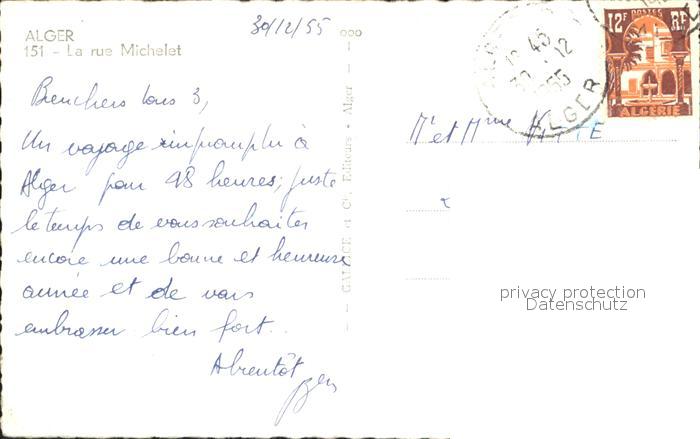 ALGER
151 - La rue Michelet
30/12/55
Bien chers tous 3,
Un voyage impromptu à
Alger pour 48 heures; juste
le temps de vous souhaiter
encore une bonne et heureuse
année et de vous
embrasser bien fort..
A bientôt
GALLICE et Cie, Editeurs - Alger
12F POSTES RF
ALGÉRIE
ALGER
Mr et Mme
privacy protection
Datenschutz